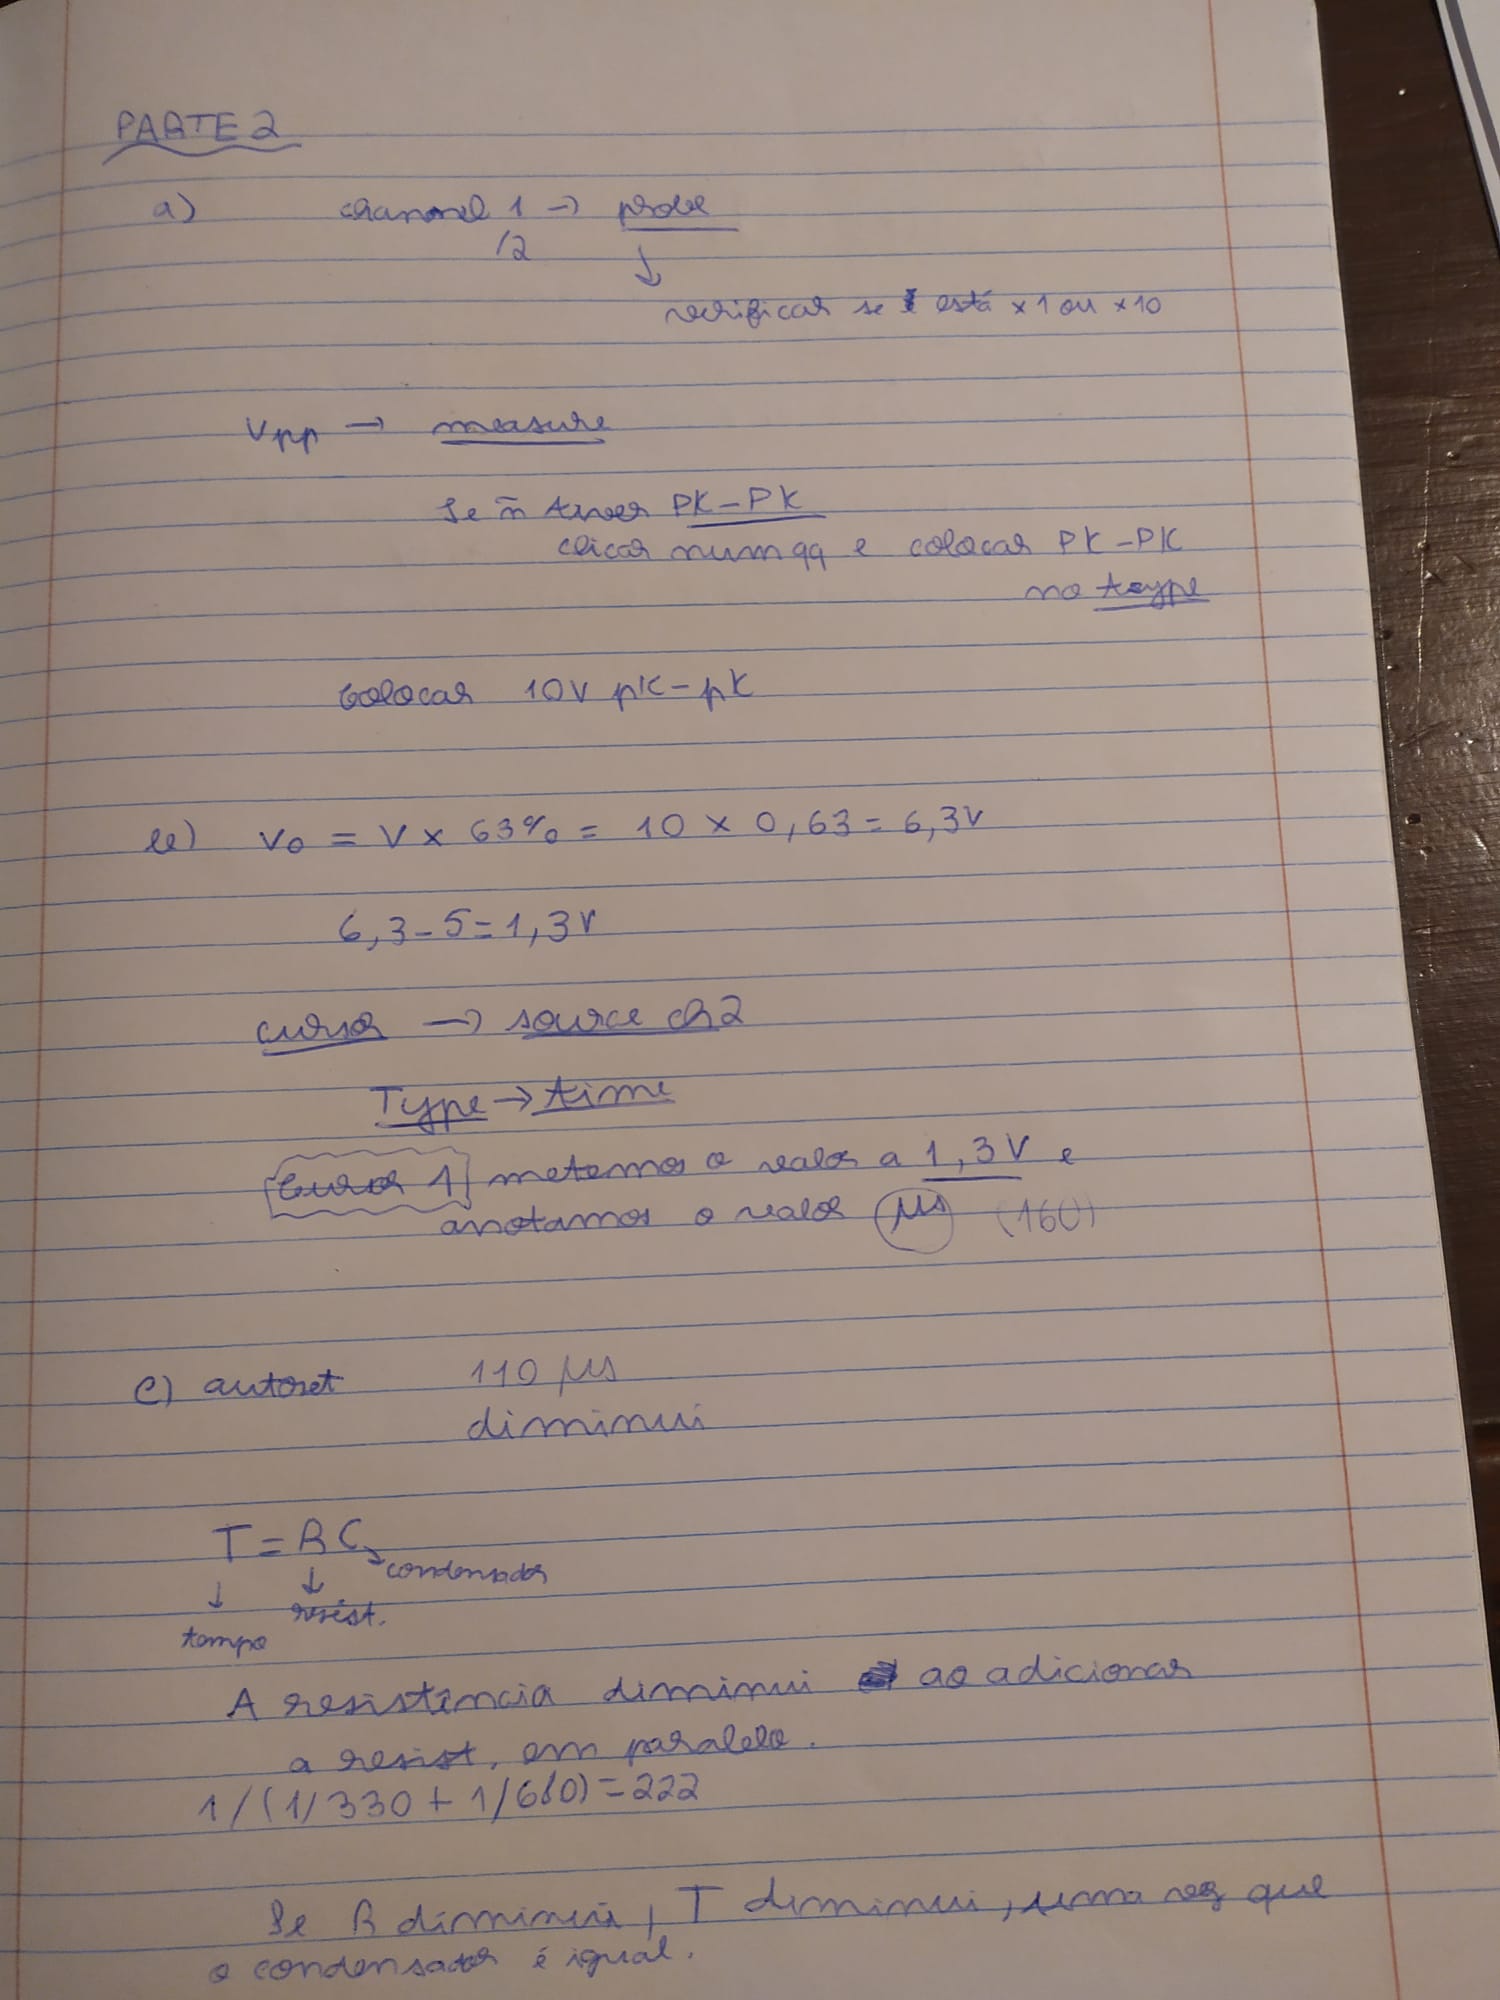 PARTE 2
a) channel 1 → probe
/2
↓
verificar se está x1 ou x10
Vpp → measure
Se ñ tiver PK-PK
clicar num qq e colocar PK-PK
no type
Colocar 10V pk-pk
b) V0 = V x 63% = 10 x 0,63 = 6,3V
6,3 - 5 = 1,3V
cursor → source ch2
Type → time
Cursor 1 metemos o valor a 1,3V e
anotamos o valor μs (160)
c) autoset 110 μs
diminui
T = RC → condensador
↓ ↓
resist.
tempo
A resistência diminui ao adicionar
a resist. em paralelo.
1/(1/330 + 1/680) = 222
Se R diminuir, T diminui, uma vez que
o condensador é igual.